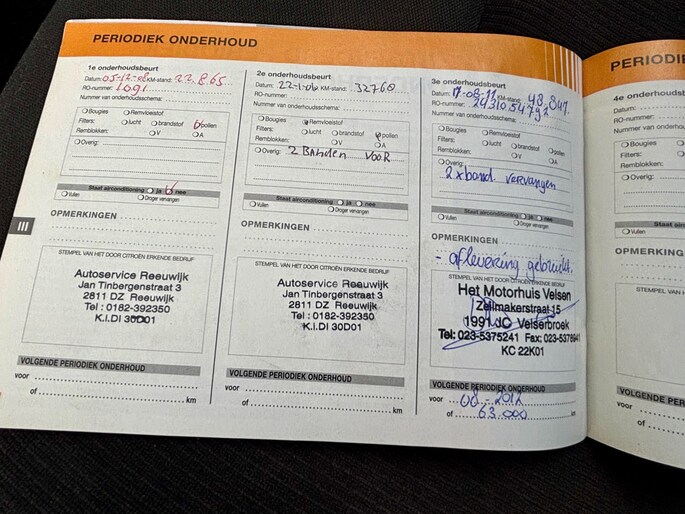 PERIODIEK ONDERHOUD
1e onderhoudsbeurt
Datum: 05-12-08 KM-stand: 22.865
RO-nummer: Logi
Nummer van onderhoudsschema:
Bougies Remvloeistof
Filters: lucht brandstof pollen
Remblokken: V A
Overig:
Staat airconditioning ja nee
Vullen Droger vervangen
OPMERKINGEN
STEMPEL VAN HET DOOR CITROËN ERKENDE BEDRIJF
Autoservice Reeuwijk
Jan Tinbergenstraat 3
2811 DZ Reeuwijk
Tel : 0182-392350
K.I.DI 30D01
VOLGENDE PERIODIEK ONDERHOUD
voor
of km
2e onderhoudsbeurt
Datum: KM-stand: 32760
RO-nummer:
Nummer van onderhoudsschema:
Bougies Remvloeistof
Filters: lucht brandstof pollen
Remblokken: V A
Overig: 2 Banden VOOR
Staat airconditioning ja nee
Vullen Droger vervangen
OPMERKINGEN
STEMPEL VAN HET DOOR CITROËN ERKENDE BEDRIJF
Autoservice Reeuwijk
Jan Tinbergenstraat 3
2811 DZ Reeuwijk
Tel : 0182-392350
K.I.DI 30D01
VOLGENDE PERIODIEK ONDERHOUD
voor
of km
3e onderhoudsbeurt
Datum: 17-08-11 KM-stand: 48.841
RO-nummer:
Nummer van onderhoudsschema:
Bougies Remvloeistof
Filters: lucht brandstof pollen
Remblokken: V A
Overig:
2x band vervangen
Staat airconditioning ja nee
Vullen Droger vervangen
OPMERKINGEN
- aflevering gebruikt.
STEMPEL VAN HET DOOR CITROËN ERKENDE BEDRIJF
Het Motorhuis Velsen
Zeilmakerstraat 15
1991 JC Velserbroek
Tel: 023-5375241 Fax: 023-5378941
KC 22K01
VOLGENDE PERIODIEK ONDERHOUD
voor 08-2012
of 63.000 km
III
PERIODI
4e onderhoudsbeurt
Datum:
RO-nummer:
Nummer van onderhoudsschema
Bougies
Filters:
Remblokken:
Overig:
Staat air
Vullen
OPMERKING
STEMPEL VAN
VOLGENDE PER
voor
of